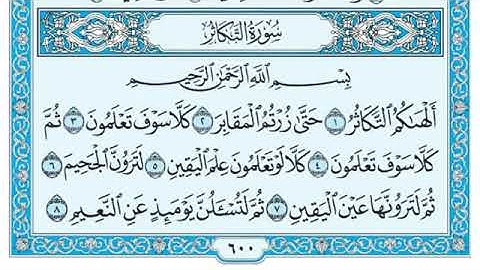 سُورَةُ التَّكَاثُرِ
بِسْمِ اللَّهِ الرَّحْمَٰنِ الرَّحِيمِ
أَلْهَاكُمُ التَّكَاثُرُ ١ حَتَّىٰ زُرْتُمُ الْمَقَابِرَ ٢ كَلَّا سَوْفَ تَعْلَمُونَ ٣ ثُمَّ
كَلَّا سَوْفَ تَعْلَمُونَ ٤ كَلَّا لَوْ تَعْلَمُونَ عِلْمَ الْيَقِينِ ٥ لَتَرَوُنَّ الْجَحِيمَ ٦
ثُمَّ لَتَرَوُنَّهَا عَيْنَ الْيَقِينِ ٧ ثُمَّ لَتُسْـَٔلُنَّ يَوْمَئِذٍ عَنِ النَّعِيمِ ٨
٦٠٠